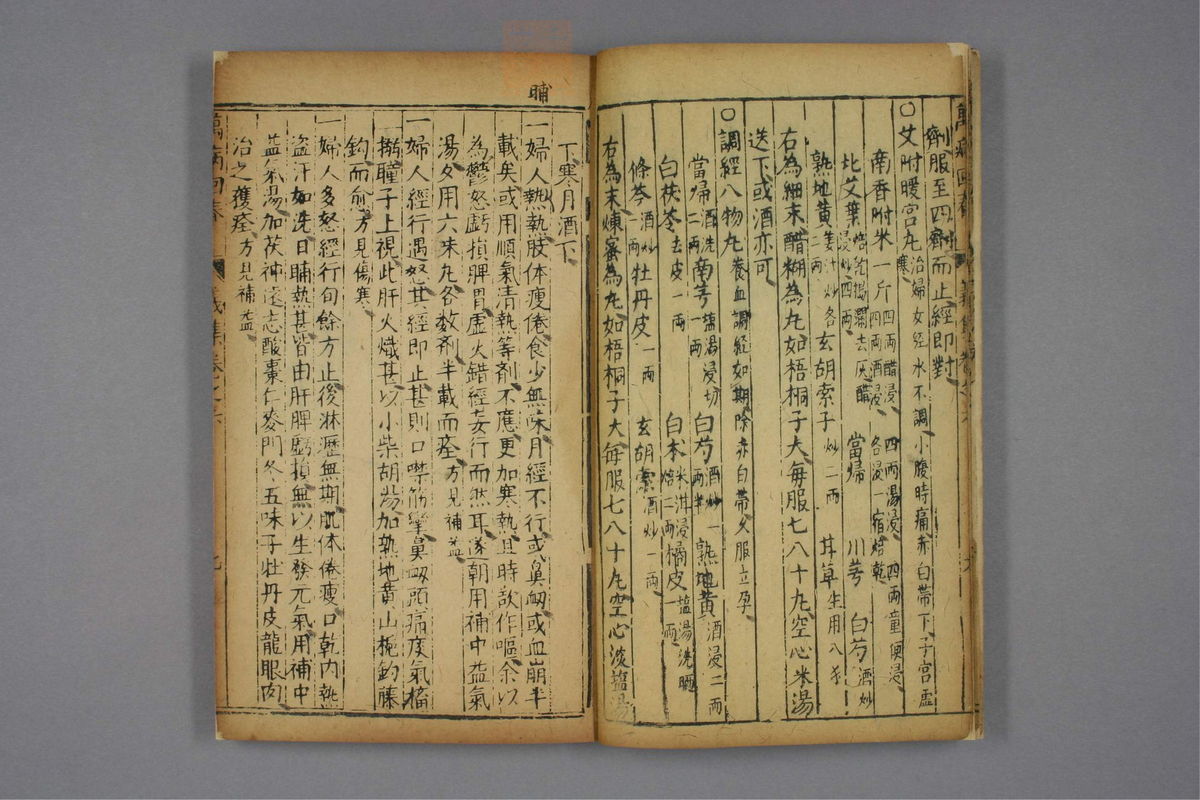 劑服至四劑而止經即對
○艾附暖宮丸治婦女經水不調小腹時痛赤白帶下子宮虛寒
南香附米一斤四兩醋浸四兩湯浸四兩童便浸四兩酒浸各浸一宿焙乾
北艾葉焙乾搗爛去灰醋浸炒四兩 當歸 川芎 白芍酒炒
熟地黃姜汁炒各二兩 玄胡索子炒二兩 甘草生用八
右為細末醋糊為丸如梧桐子大每服七八十丸空心米湯
送下或酒亦可
○調經八物丸養血調經如期除赤白帶久服立孕
當歸酒洗二兩 南芎鹽湯浸切一兩 白芍酒炒一兩半 熟地黃酒浸二兩
白茯苓去皮一兩 白朮米泔浸焙二兩 橘皮鹽湯洗晒一兩
條芩酒炒一兩 牡丹皮一兩 玄胡索酒炒一兩
右為末煉蜜為丸如梧桐子大每服七八十丸空心淡鹽湯
晡
下寒月酒下
一婦人熱熱肢体瘦倦食少無味月經不行或鼻衂或血崩半
載矣或用順氣清熱等剤不應更加寒熱且時欲作嘔余以
為鬱怒虧損脾胃虛火錯經妄行而然耳遂朝用補中益氣
湯夕用六味丸各数剤半載而痊方見補益
一婦人經行遇怒其經即止甚則口噤筋攣鼻衂頭痛痰氣搐
搦瞳子上視此肝火熾甚以小柴胡湯加熟地黃山梔鈎藤
鈎而愈方見傷寒
一婦人多怒經行旬餘方止後淋瀝無期肌体倦瘦口乾内熱
盗汁如洗日晡熱甚皆由肝脾虧損無以生發元氣用補中
益氣湯加茯神遠志酸棗仁麥門冬五味子牡丹皮龍眼肉
治之獲痊方見補益
萬病回春